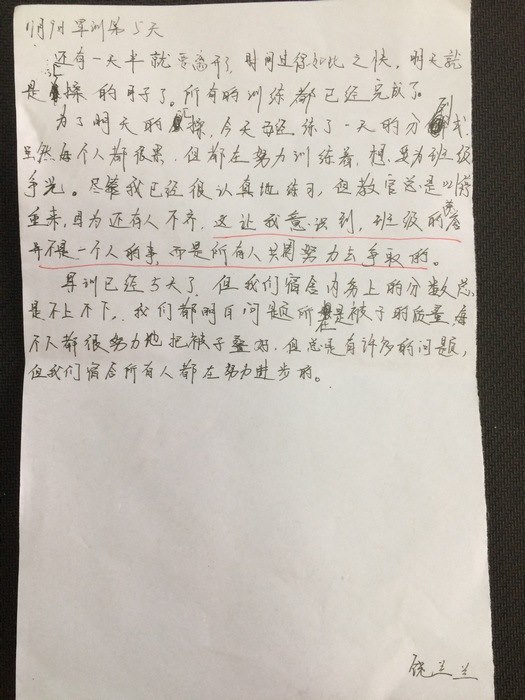 11月9日 军训第5天
还有一天半就要离开了，时间过得如此之快，明天就
是汇操的日子了。所有的训练都已经完成了。
为了明天的汇操，今天已经练了一天的分列式，
虽然每个人都很累，但都在努力训练着，想要为班级
争光。尽管我已经很认真地练习，但教官总是叫
重来，因为还有人不齐，这让我意识到，班级的荣誉
并不是一个人的事，而是所有人共同努力去争取的。
军训已经5天了，但我们宿舍内务上的分数总
是不上不下，我们都明白问题所在是被子的质量，每
个人都很努力地把被子叠好，但总是有许多的问题，
但我们宿舍所有人都在努力进步的。
饶兰兰